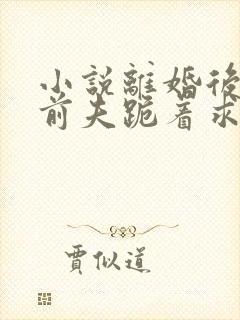 小說離婚後
前夫跪着求
賈似道